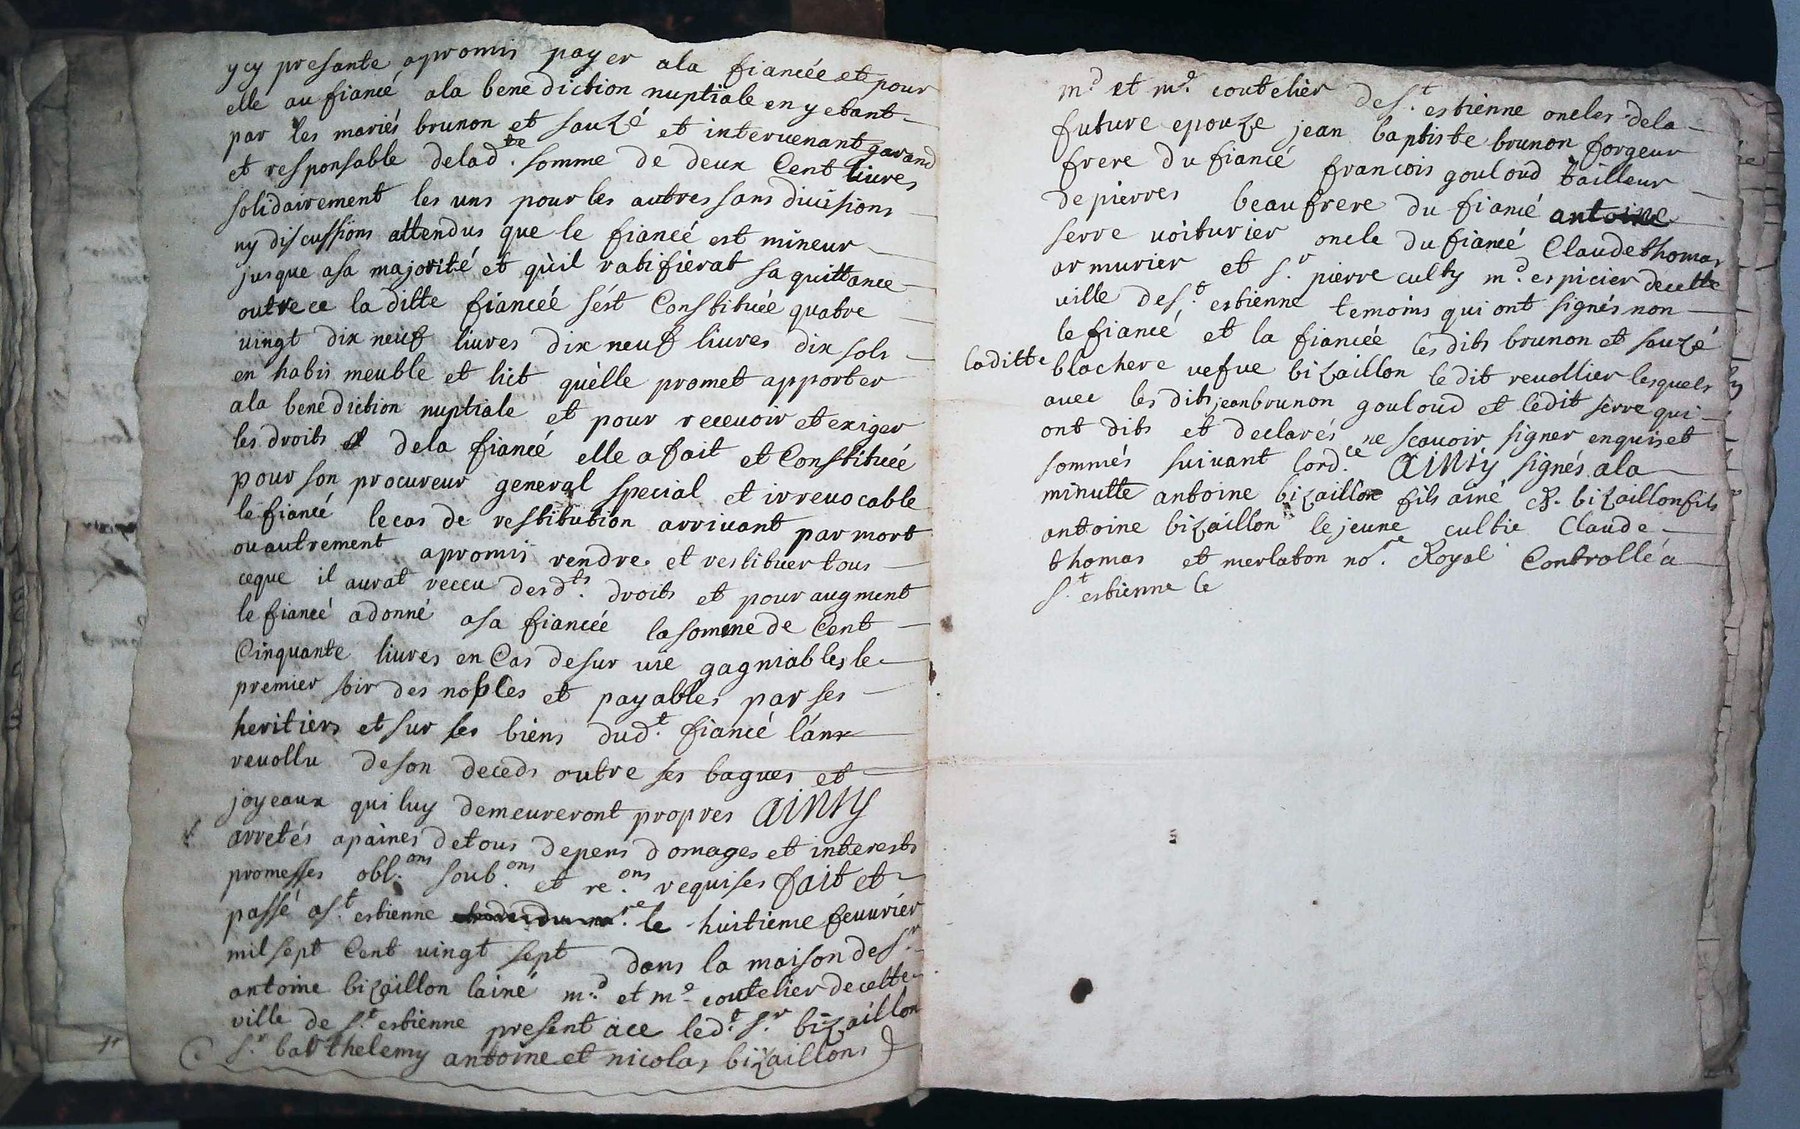 ycy presante apromis payer ala fiancée et pour
elle au fiancé ala benediction nuptiale en y etant
par les mariés brunon et sauzé et intervenant garand
et responsable delad.te somme de deux Cent livres
solidairement les uns pour les autres sans divisions
ny discussions attendus que le fiancé est mineur
jusque asa majorité et qu'il ratifierat sa quittance
outre ce la ditte fiancéé s'ést Constituéé quatre
vingt dix neuf livres dix neuf livres dix sols
en habis meuble et lict quélle promet apporter
ala benediction nuptiale et pour recevoir et exiger
les droits dela fiancé elle a fait et Constituéé
pour son procureur general special et irrevocable
le fiancé le cas de restitution arrivant par mort
ou autrement apromis rendre et restituer tous
ceque il aurat reccu desd.ts droits et pour augment
le fiancé a donné asa fiancéé la somme de Cent
Cinquante livres en Cas desur vie gagniables le
premier soir des nopces et payables par ses
heritiers et sur ses biens dud.t fiancé lán
revollu deson deceds outre ses bagues et
joyeaux qui luy demeureront propres Ainsy
arretés apaines detous depens domages et interests
promesses obl.ons soub.ons et re.ons requises fait et
passé as.t estienne le huitieme fevvrier
mil sept Cent vingt sept dans la maison de s.r
antoine bizaillon lainé m.d et m.e coutelier decette
ville de s.t estienne present ace led.t s.r bizaillon
s.r barthelemy antoine et nicolas bizaillons
m.d et m.e coutelier de s.t estienne oncles dela
future epouze jean baptiste brunon forgeur
frere du fiancé francois gouloud tailleur
de pierres beaufrere du fiancé antoine
serre voiturier oncle du fiancé Claude thomas
armurier et s.r pierre culty m.d espicier decette
ville de s.t estienne temoins qui ont signés non
le fiancé et la fiancéé les dits brunon et sauzé
laditte blachere vefve bizaillon ledit revollier lesquels
avec les dits jean brunon gouloud et ledit serre qui
ont dits et declarés ne scavoir signer enquis et
sommés suivant lord.ce Ainsy signés ala
minutte antoine bizaillon fils ainé bizaillon fils
antoine bizaillon le jeune cultie Claude
thomas et merlaton no.re Royal Controllé a
s.t estienne le